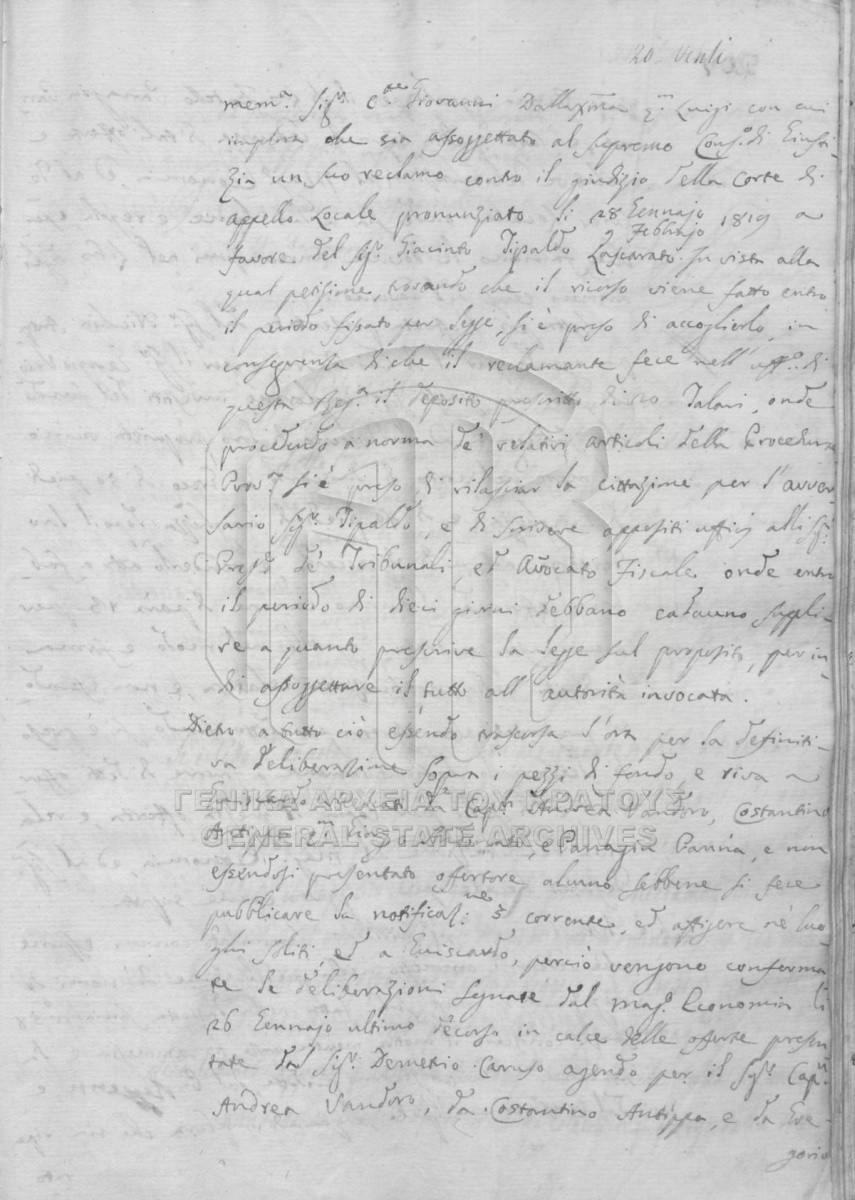 20. Venti
mem.ª Sig.r C.te Giovanni Dallaxma q.m Luigi con cui
implora che sia assoggettato al Supremo Cons.o di Giusti-
zia un suo reclamo contro il giudizio della Corte di
appello Locale pronunziato li 28 Gennajo 1819 a
9 Febbrajo
favore del Sig.r Giacinto Tipaldo Lascarato. In vista alla
qual petizione, trovando che il ricorso viene fatto entro
il periodo fissato per legge, si è preso di accoglierlo, in
conseguenza di che il reclamante fece nell' uff.o di
questa Reg.a il deposito prescritto di Talari, onde
procedendo a norma de' relativi articoli della Procedura
Prov.a si è preso di rilasciar la cittazione per l'avver-
sario Sig.r Tipaldo, e di scrivere appositi ufficj alli Sig.i
Presid.i de' Tribunali, ed Avocato Fiscale onde entro
il periodo di dieci giorni debbano cadauno suppli-
re a quanto prescrive la legge sul proposito, per in-
di assoggettare il tutto all' autorità invocata.
Dietro a tutto ciò essendo trascorsa l'ora per la definiti-
va deliberazione sopra i pezzi di fondo e riva a
Guiscardo Cap.n Andrea Vandoro, Costantino
Antippa q.m e Panagin Pannia, e non
essendosi presentato offertore alcuno sebbene si fece
pubblicare la notificaz:ne 3 corrente, ed affigere né luo-
ghi soliti, ed a Guiscardo, perciò vengono conferma-
te le deliberazioni segnate dal Mag.o Economia li
26 Gennajo ultimo decorso in calce delle offerte presen-
tate dal Sig.r Demetrio Caruso agendo per il Sig.r Cap.n
Andrea Vandoro, da Costantino Antippa, e da Gre-
gorio